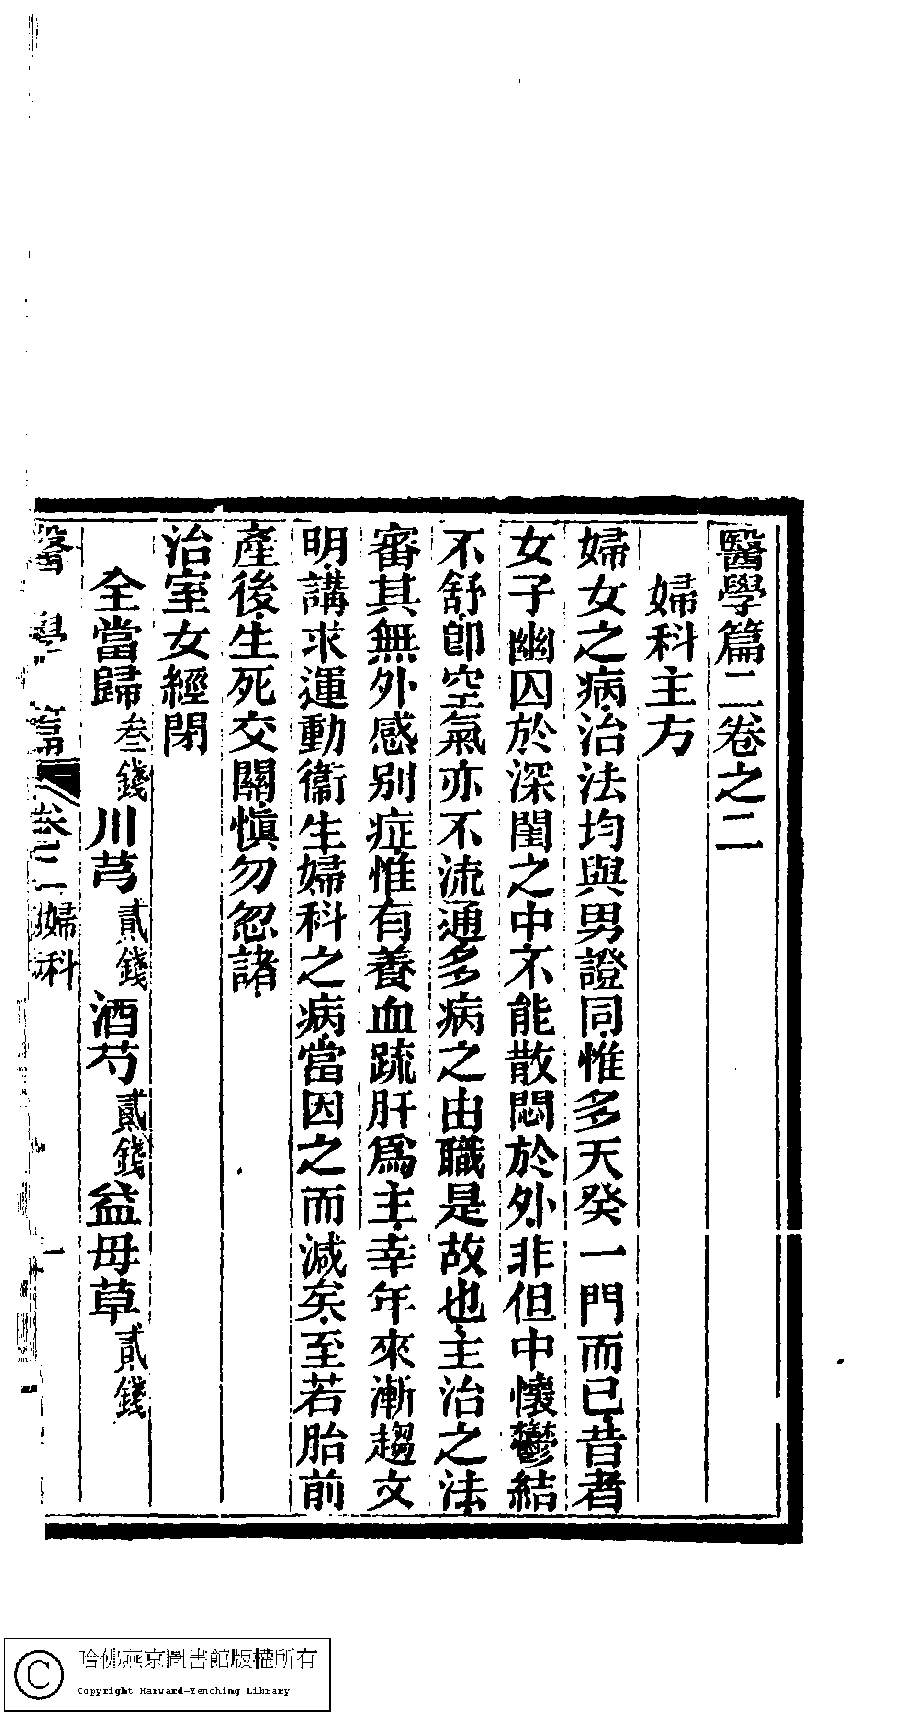 醫學篇二卷之二
婦科主方
婦女之病治法均與男證同惟多天癸一門而已昔者
女子幽囚於深閨之中不能散悶於外非但中懷鬱結
不舒卽空氣亦不流通多病之由職是故也主治之法
審其無外感別症惟有養血疏肝爲主幸年來漸趨文
明講求運動衞生婦科之病當因之而減矣至若胎前
產後生死交關愼勿忽諸
治室女經閉
全當歸叁錢川芎貳錢酒芍貳錢益母草貳錢
醫學篇 卷之二 婦科 一
哈佛燕京圖書館版權所有
Copyright Harvard-Yenching Library